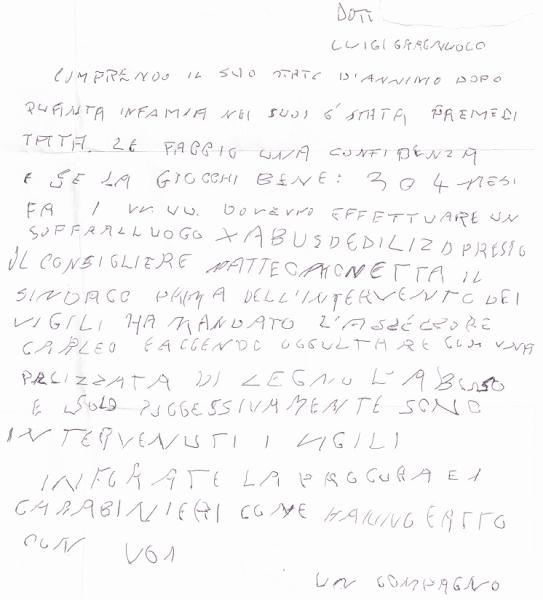 DOTT
LUIGI GRAGNUOLO
COMPRENDO IL SUO STATO D'ANNIMO DOPO
QUANTA INFAMIA NEI SUOI È STATA PREMEDI
TATA. LE FACCIO UNA CONFIDENZA
E SE LA GIOCCHI BENE: 3 O 4 MESI
FA I VV.UU. DOVEVNO EFFETTUARE UN
SOFFRALLUOGO X ABUSDEDILIZO PRESSO
IL CONSIGLIERE MATTEO MONETTA IL
SINDACO PRIMA DELL'INTERVENTO DEI
VIGILI HA MANDATO L'ASSESSORE
CAPLEO FACCENDO OCCULTARE CON UNA
PALIZZATA DI LEGNO L'ABUSO
E SOLO SUCCESSIVAMENTE SONO
INTERVENUTI I VIGILI
INFORATE LA PROCURA E I
CARABINIERI COME HANNO FATTO
CON VOI
UN COMPAGNO